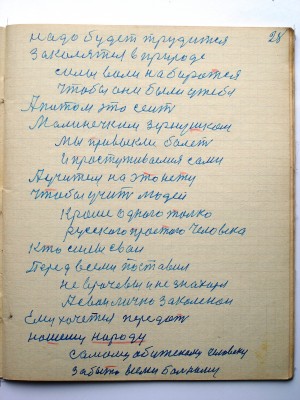 28
надо будет трудится
Закалятся в природе
силы воли набиратся
Чтобы они были у тебя
А потом это сеит
Малинечким зурнушкам
Мы привыкли болет
и простуживатся сами
А учителя на это нету
Чтобы учит людей
Кроме одного только
русского простого Человека
Кто силы свои
Перед всеми поставил
не врачевы и не знахаря
А свои лично закаленои
Ему хочется передат
нашему народу
самому обижскому человеку
Забыто всеми болному